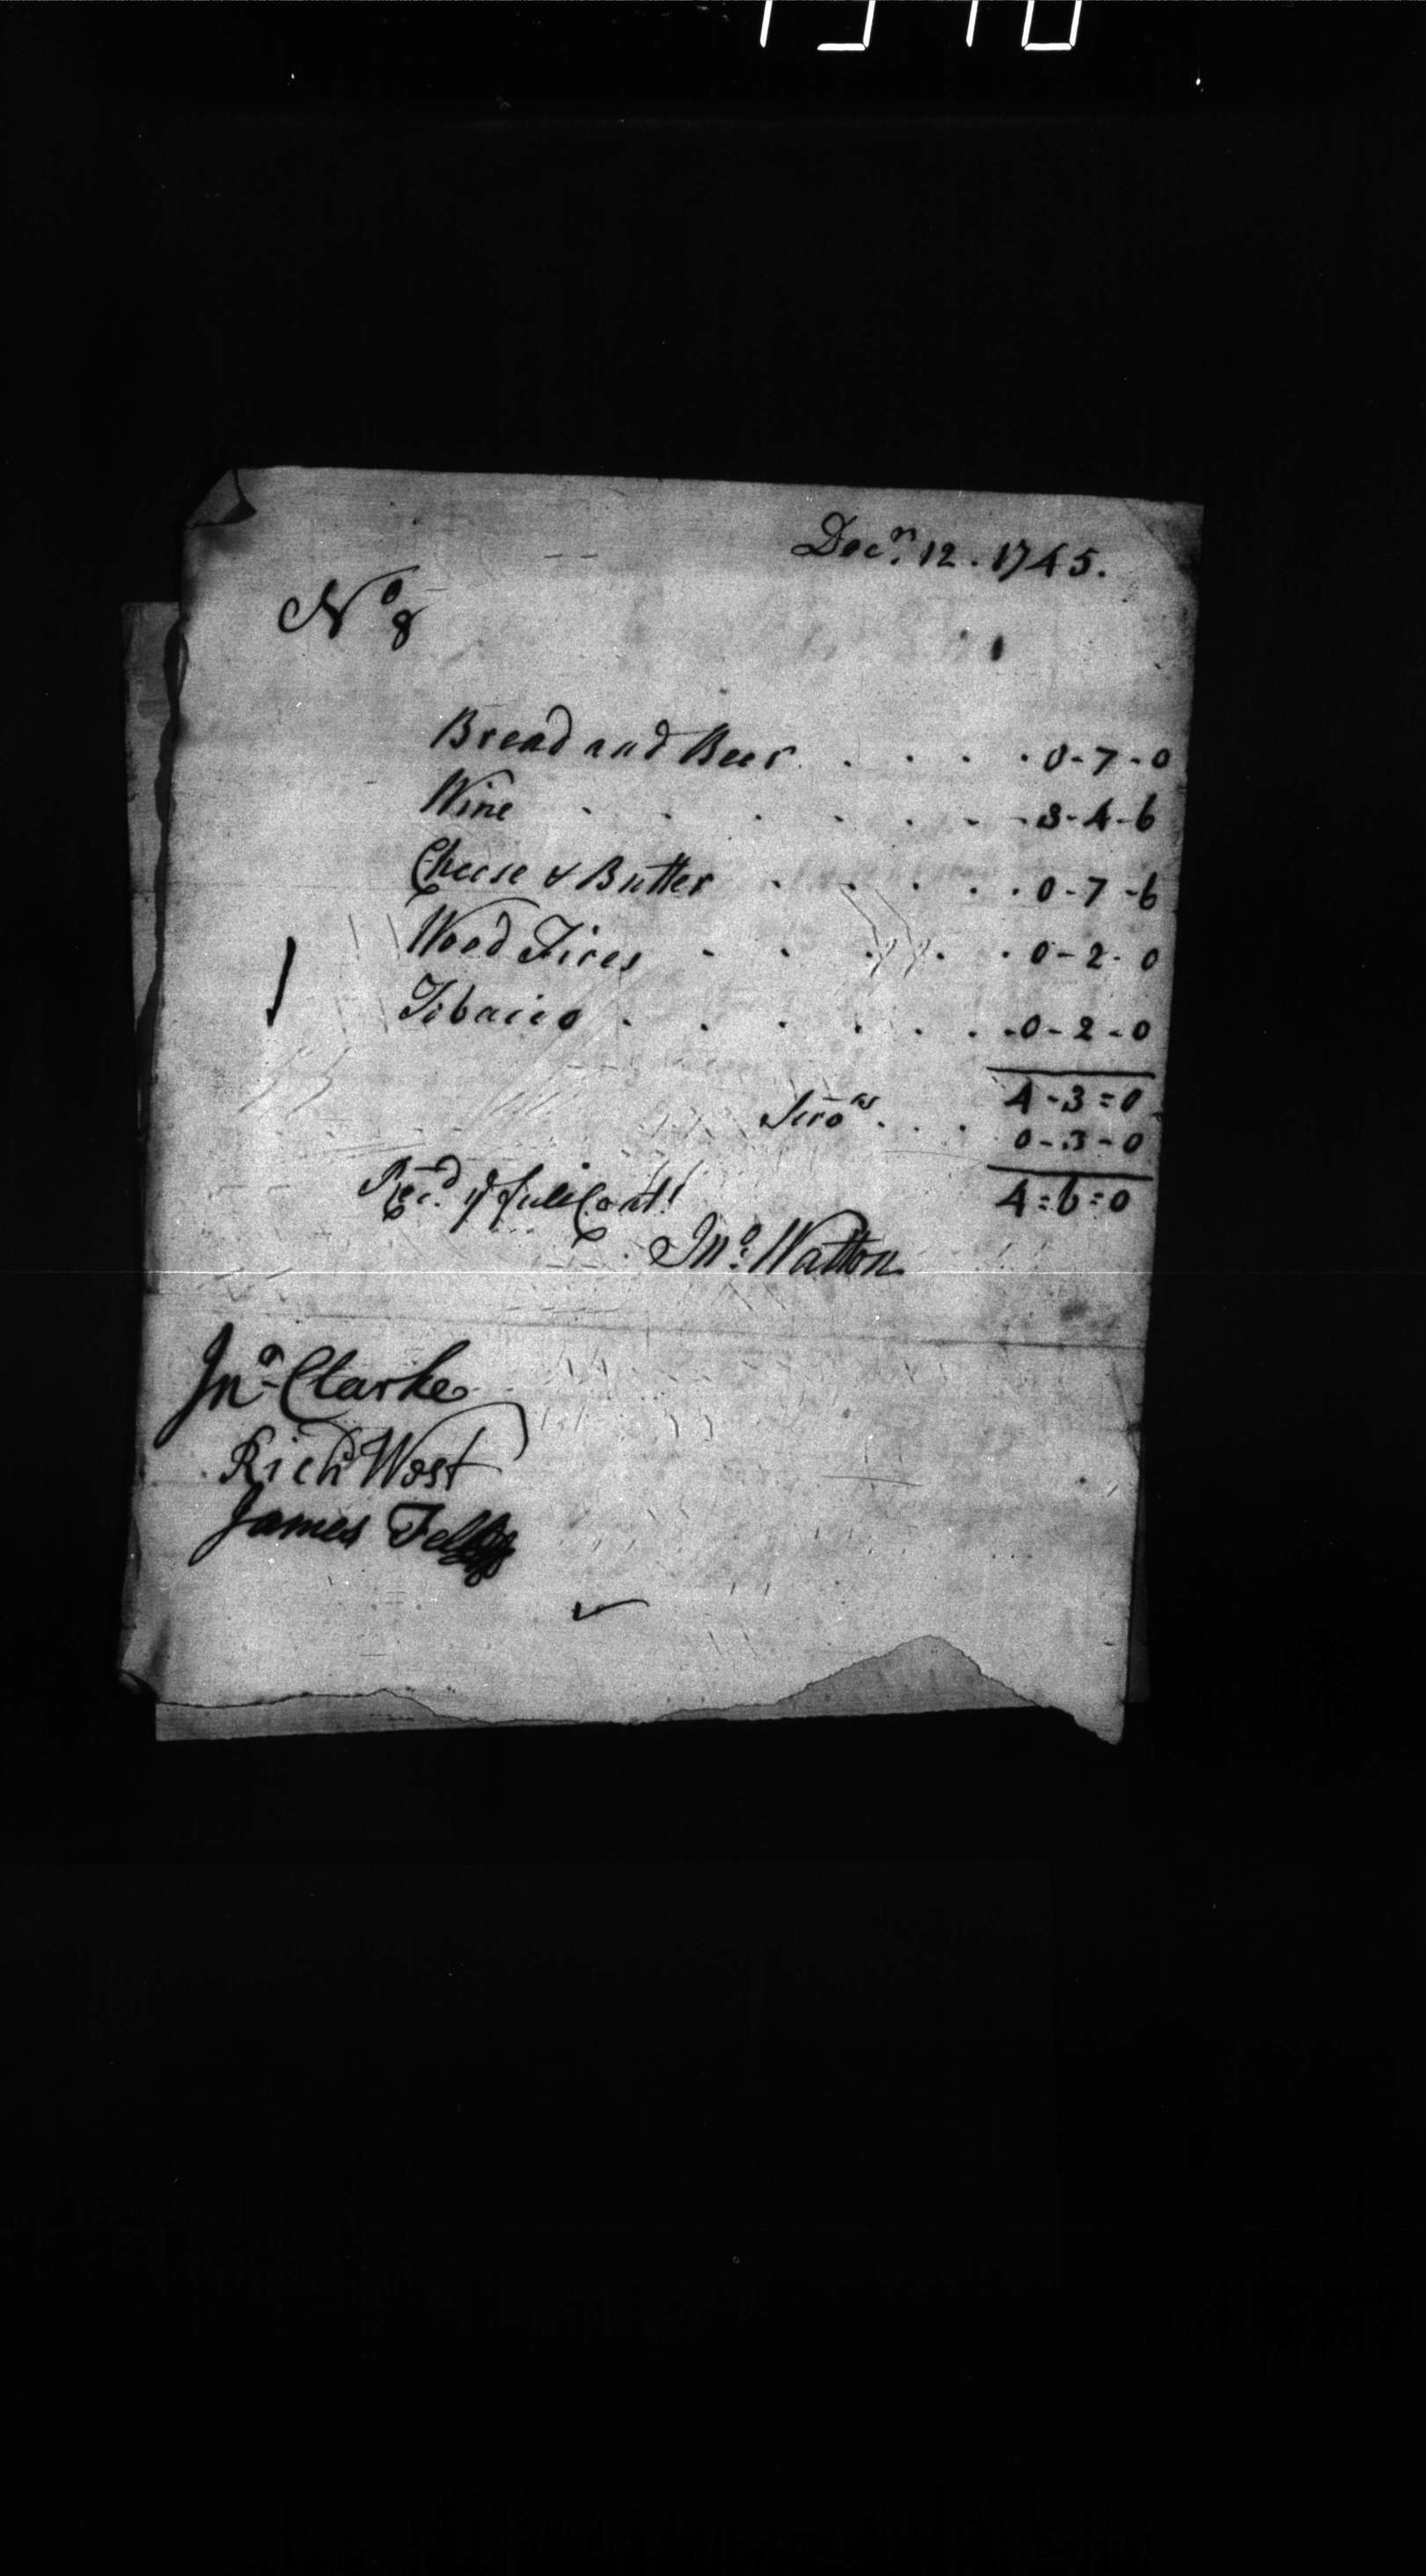 Decr. 12 . 1745.
No 8
Bread and Beer . . . . 0-7-0
Wine . . . . . . . 3-4-6
Cheese & Butter . . . . . 0-7-6
Wood Fires . . . . . 0-2-0
Tobacco . . . . . . . 0-2-0
4-3=0
Servts . . . 0-3-0
4=6=0
Recd ye full Contts
Jno: Watton
Jno Clarke
Richd West
James